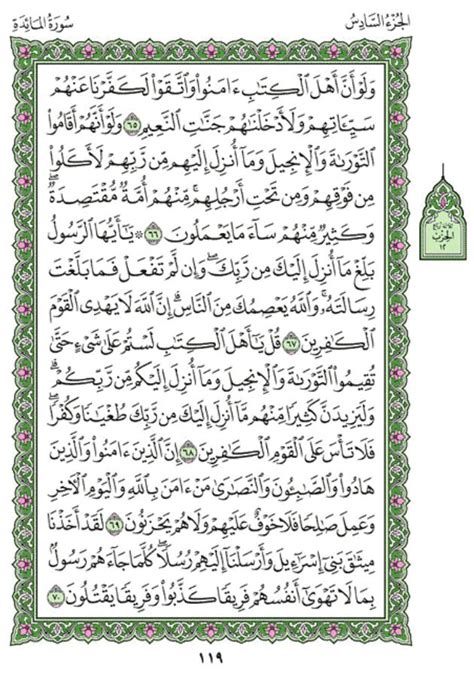 الجُزْءُ السَّادِسُ
سُورَةُ المَائِدَةِ
وَلَوْ أَنَّ أَهْلَ ٱلْكِتَٰبِ ءَامَنُوا۟ وَٱتَّقَوْا۟ لَكَفَّرْنَا عَنْهُمْ
سَيِّـَٔاتِهِمْ وَلَأَدْخَلْنَٰهُمْ جَنَّٰتِ ٱلنَّعِيمِ ٦٥ وَلَوْ أَنَّهُمْ أَقَامُوا۟
ٱلتَّوْرَىٰةَ وَٱلْإِنجِيلَ وَمَآ أُنزِلَ إِلَيْهِم مِّن رَّبِّهِمْ لَأَكَلُوا۟
مِن فَوْقِهِمْ وَمِن تَحْتِ أَرْجُلِهِم ۚ مِّنْهُمْ أُمَّةٌ مُّقْتَصِدَةٌ ۖ
وَكَثِيرٌ مِّنْهُمْ سَآءَ مَا يَعْمَلُونَ ٦٦ ۞ يَٰٓأَيُّهَا ٱلرَّسُولُ
بَلِّغْ مَآ أُنزِلَ إِلَيْكَ مِن رَّبِّكَ ۖ وَإِن لَّمْ تَفْعَلْ فَمَا بَلَّغْتَ
رِسَالَتَهُۥ ۚ وَٱللَّهُ يَعْصِمُكَ مِنَ ٱلنَّاسِ ۗ إِنَّ ٱللَّهَ لَا يَهْدِى ٱلْقَوْمَ
ٱلْكَٰفِرِينَ ٦٧ قُلْ يَٰٓأَهْلَ ٱلْكِتَٰبِ لَسْتُمْ عَلَىٰ شَىْءٍ حَتَّىٰ
تُقِيمُوا۟ ٱلتَّوْرَىٰةَ وَٱلْإِنجِيلَ وَمَآ أُنزِلَ إِلَيْكُم مِّن رَّبِّكُمْ ۗ
وَلَيَزِيدَنَّ كَثِيرًا مِّنْهُم مَّآ أُنزِلَ إِلَيْكَ مِن رَّبِّكَ طُغْيَٰنًا وَكُفْرًا ۖ
فَلَا تَأْسَ عَلَى ٱلْقَوْمِ ٱلْكَٰفِرِينَ ٦٨ إِنَّ ٱلَّذِينَ ءَامَنُوا۟ وَٱلَّذِينَ
هَادُوا۟ وَٱلصَّٰبِـُٔونَ وَٱلنَّصَٰرَىٰ مَنْ ءَامَنَ بِٱللَّهِ وَٱلْيَوْمِ ٱلْـَٔاخِرِ
وَعَمِلَ صَٰلِحًا فَلَا خَوْفٌ عَلَيْهِمْ وَلَا هُمْ يَحْزَنُونَ ٦٩ لَقَدْ أَخَذْنَا
مِيثَٰقَ بَنِىٓ إِسْرَٰٓءِيلَ وَأَرْسَلْنَآ إِلَيْهِمْ رُسُلًا ۖ كُلَّمَا جَآءَهُمْ رَسُولٌۢ
بِمَا لَا تَهْوَىٰٓ أَنفُسُهُمْ فَرِيقًا كَذَّبُوا۟ وَفَرِيقًا يَقْتُلُونَ ٧٠
الحِزْب
١٢
١١٩